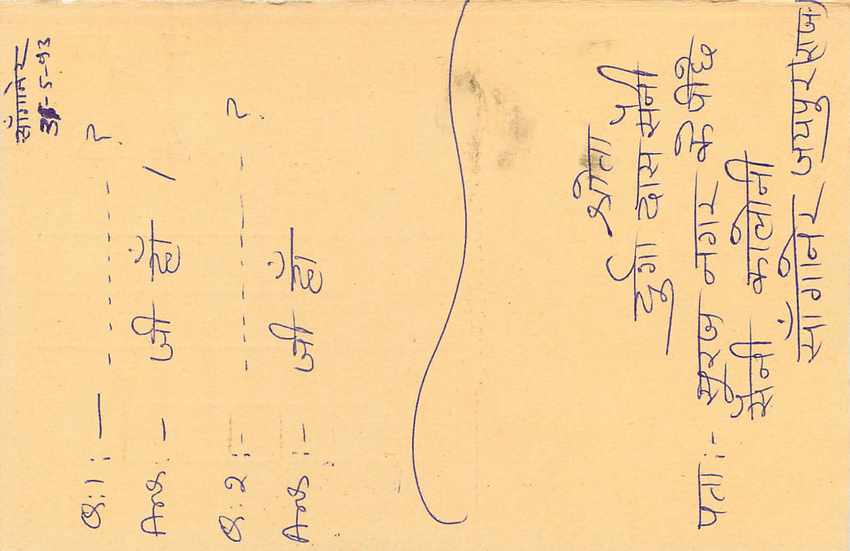 सांगानेर
31-5-93
Q:1:— -------- ?
Ans:- जी हाँ /
Q:2:- -------- ?
Ans:- जी हाँ
श्रोता
दुर्गा दास सैनी
पता:- सुरज नगर के पीछे
सैनी कालोनी
साँगानेर जयपुर (राज.)